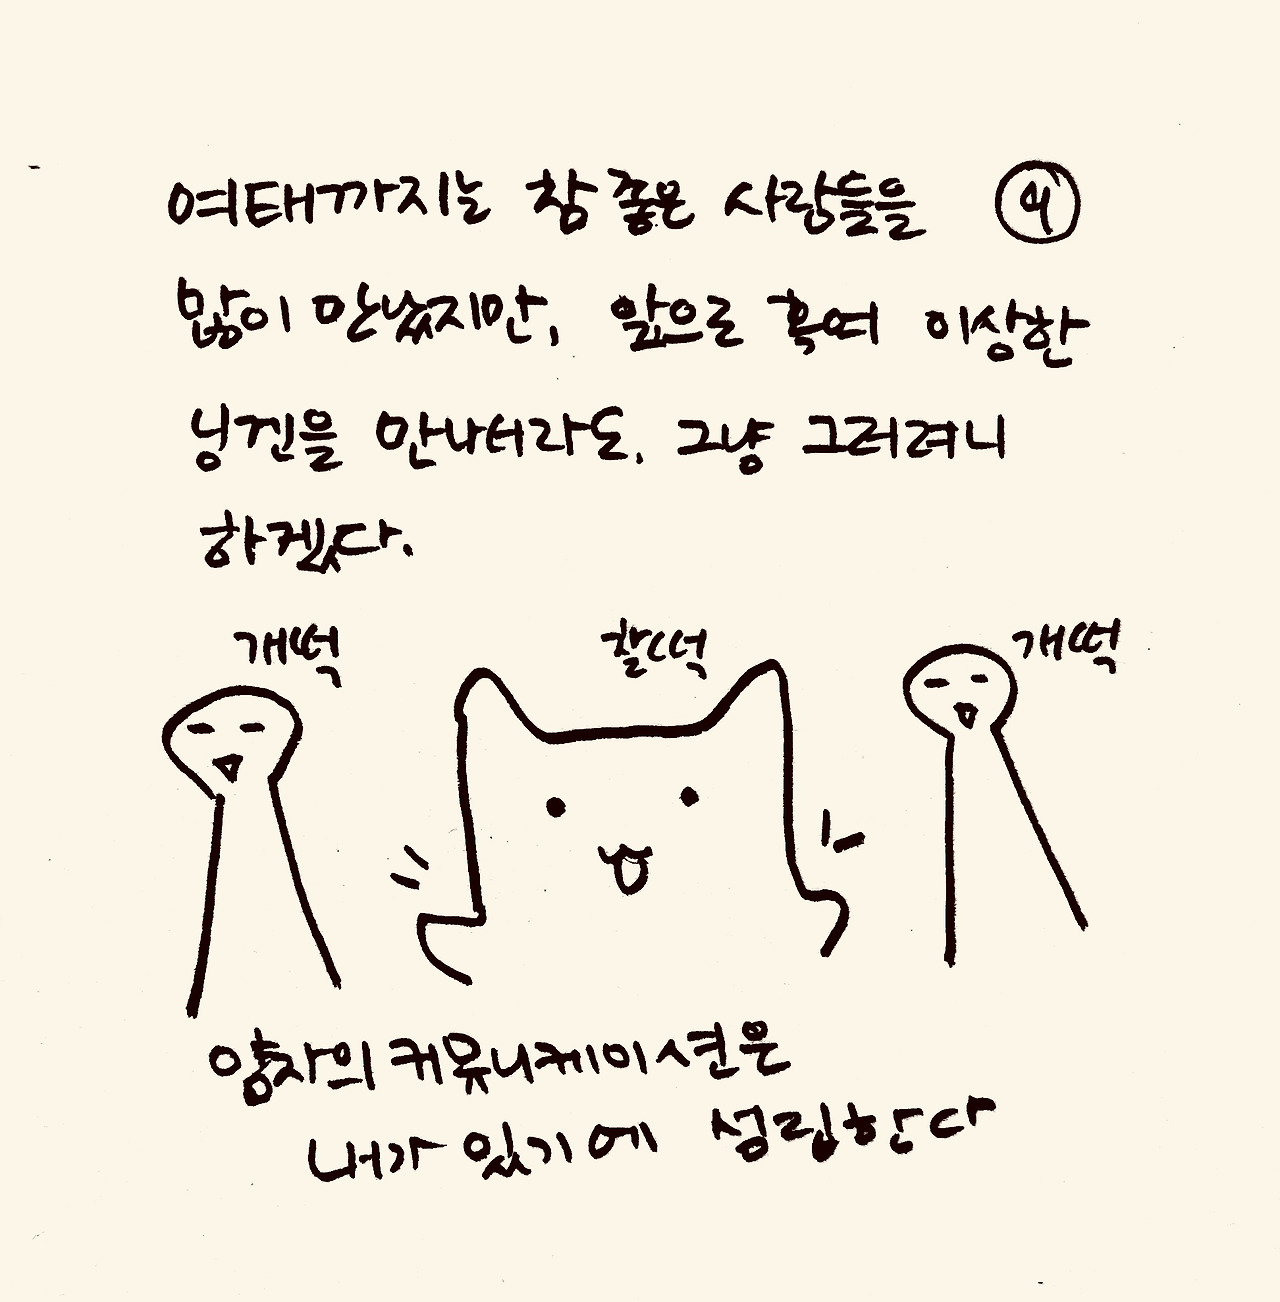 여태까지는 참 좋은 사람들을
많이 만났지만, 앞으로 혹여 이상한
닝겐을 만나더라도, 그냥 그러려니
하겠다.
개떡 찰떡 개떡
양자의 커뮤니케이션은
내가 있기에 성립한다